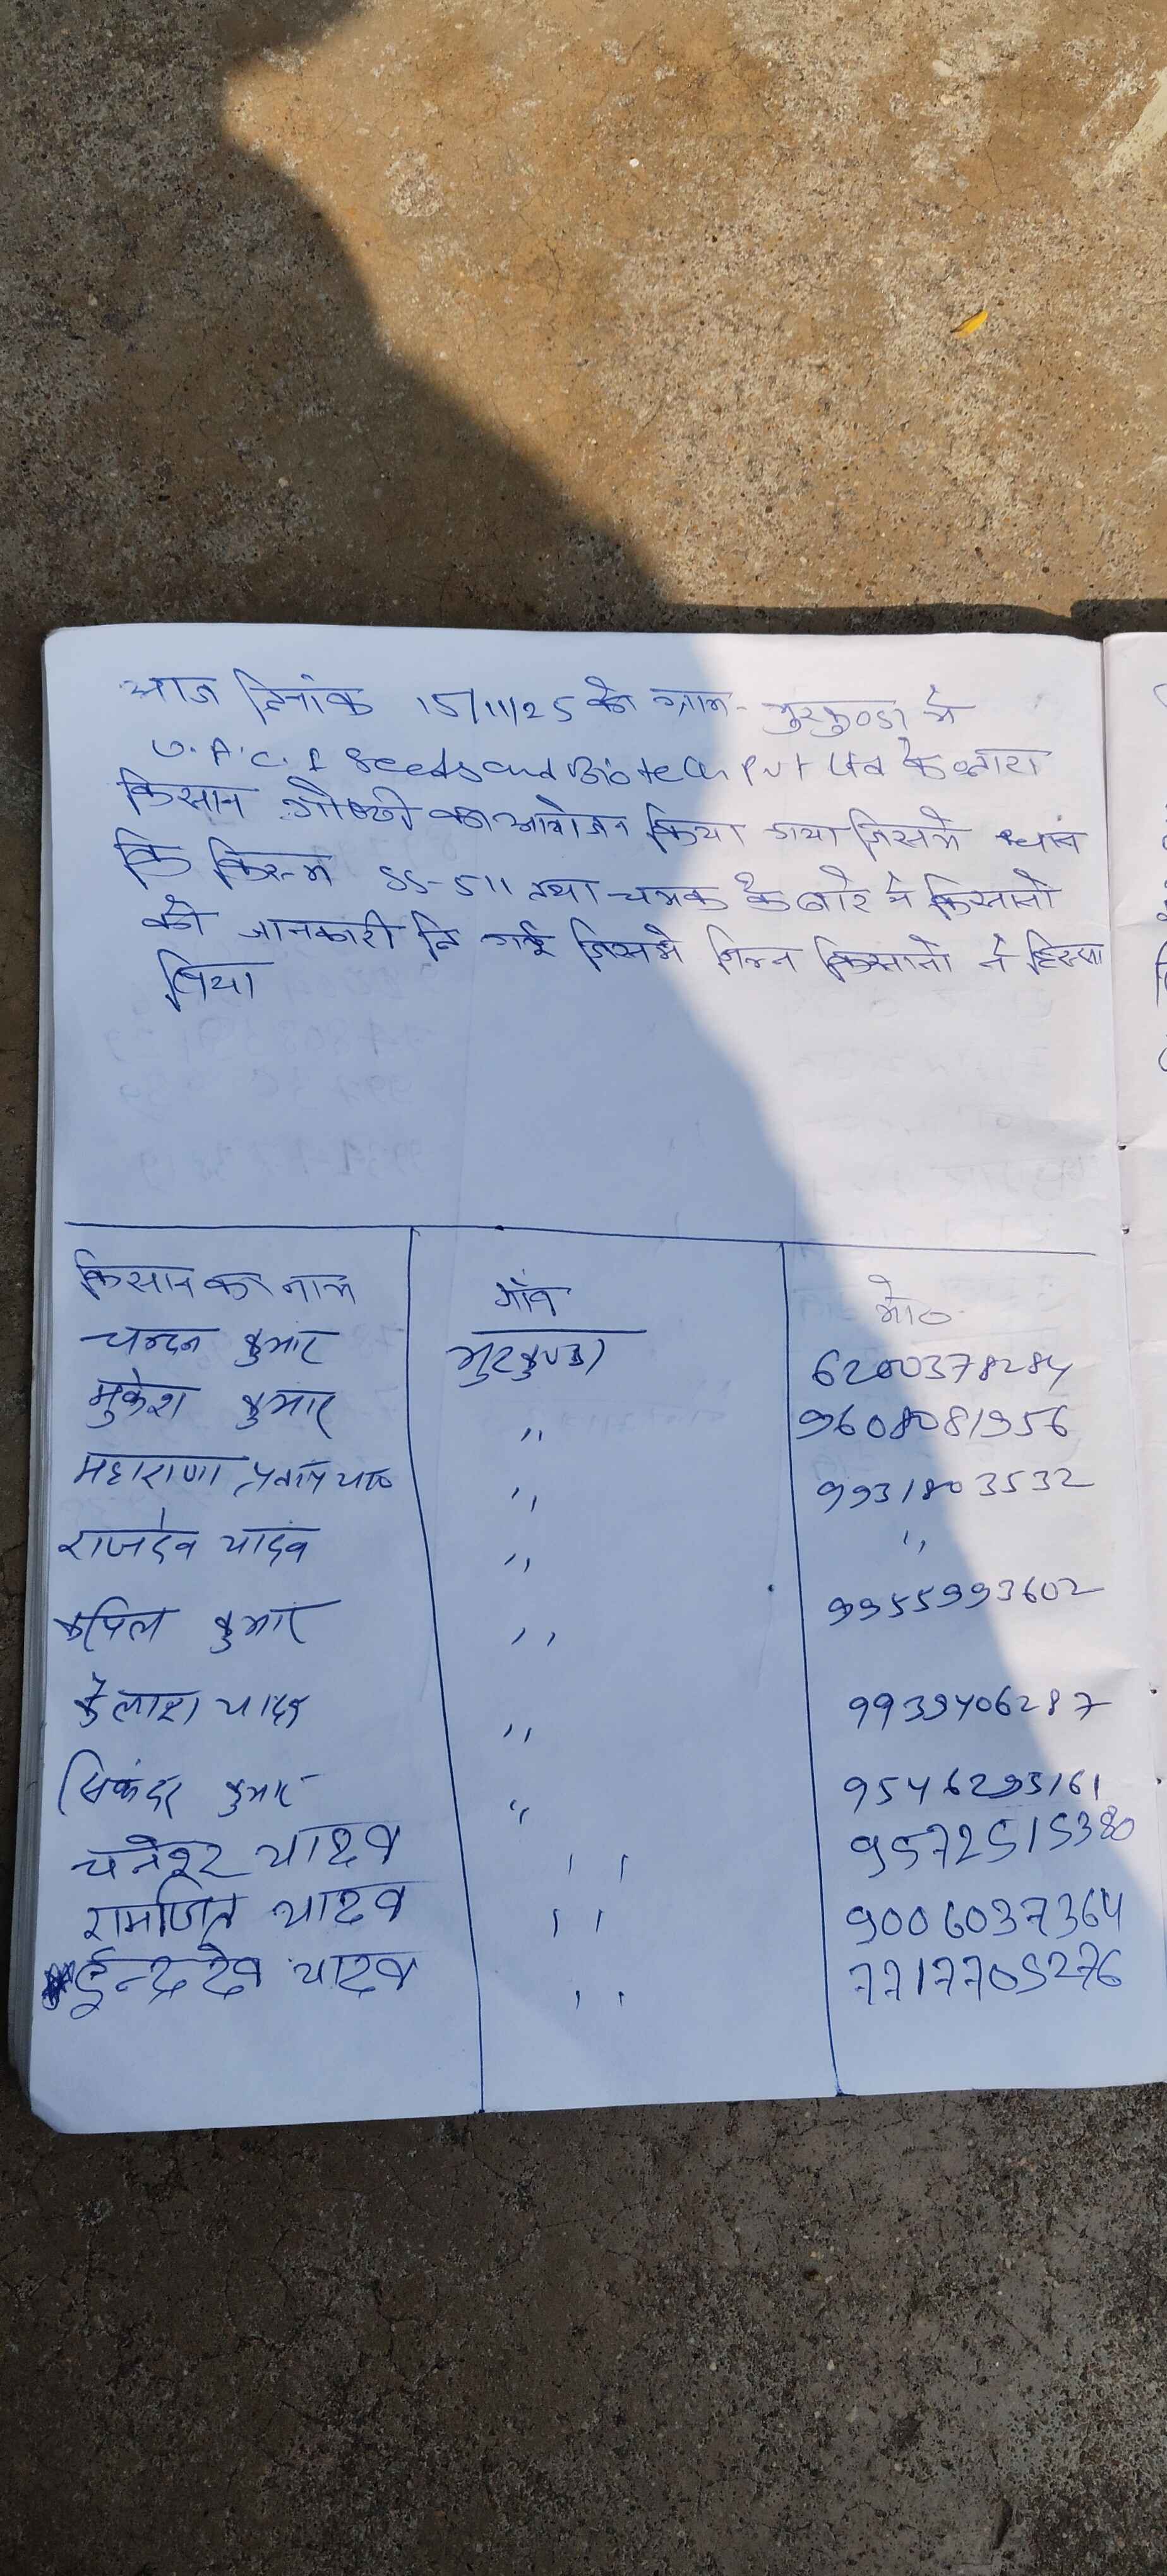 आज दिनांक 15/11/25 को ग्राम- मुरकुण्डा मे
U.A.C.I Seeds and Biotech Pvt Ltd के द्वारा
किसान गोष्ठी का आयोजन किया गया जिसमे धान
कि किस्म SS-511 तथा चमक के बारे मे किसानो
को जानकारी दि गई जिसमे निम्न किसानो ने हिस्सा
लिया
किसान का नाम गाँव मो०
चन्दन कुमार मुरकुण्डा 6200378284
मुकेश कुमार " 9608081956
महाराणा प्रताप याद० " 9931803532
राजदेव यादव " "
कपिल कुमार " 9955993602
कैलाश यादव " 9939406287
सिकंदर कुमार " 9546293161
चनेश्वर यादव " 9572515380
रामजित यादव " 9006037364
ईन्द्रदेव यादव " 7717705276